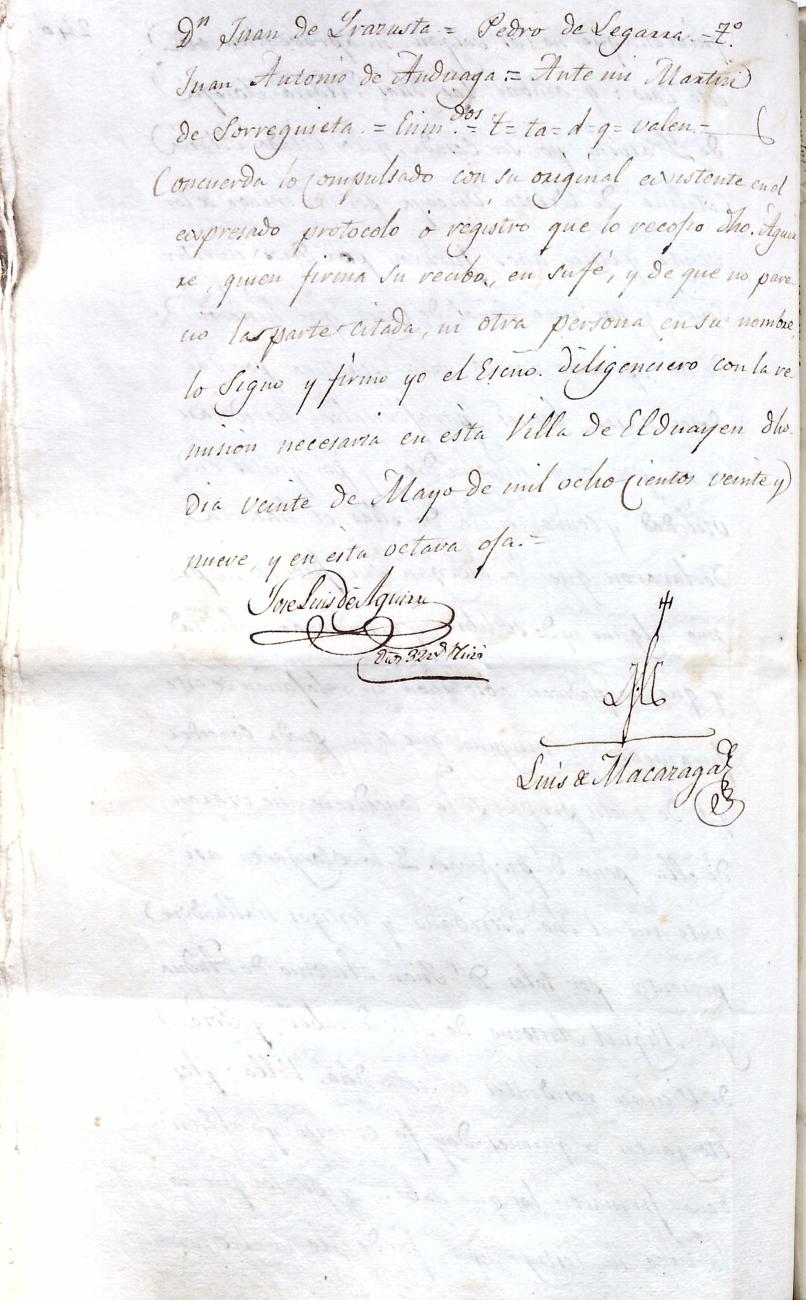 Dn Juan de Yrazusta = Pedro de Legarra = To
Juan Antonio de Anduaga = Ante mi Martin
de Sorreguieta = Enmdos = t = ta = d = q = valen =
Concuerda lo compulsado con su original existente en el
expresado protocolo ó registro que lo recojio dho. Aguir
re, quien firma su recibo, en su fé, y de que no pare
cio las parte citada, ni otra persona en su nombre,
lo Signo y firmo yo el Esno. diligenciero con la re
mision necesaria en esta Villa de Elduayen dho.
dia veinte de Mayo de mil ocho cientos veinte y
nueve, y en esta octava oja. =
Jose Luis de Aguirre
Luis de Macaraga